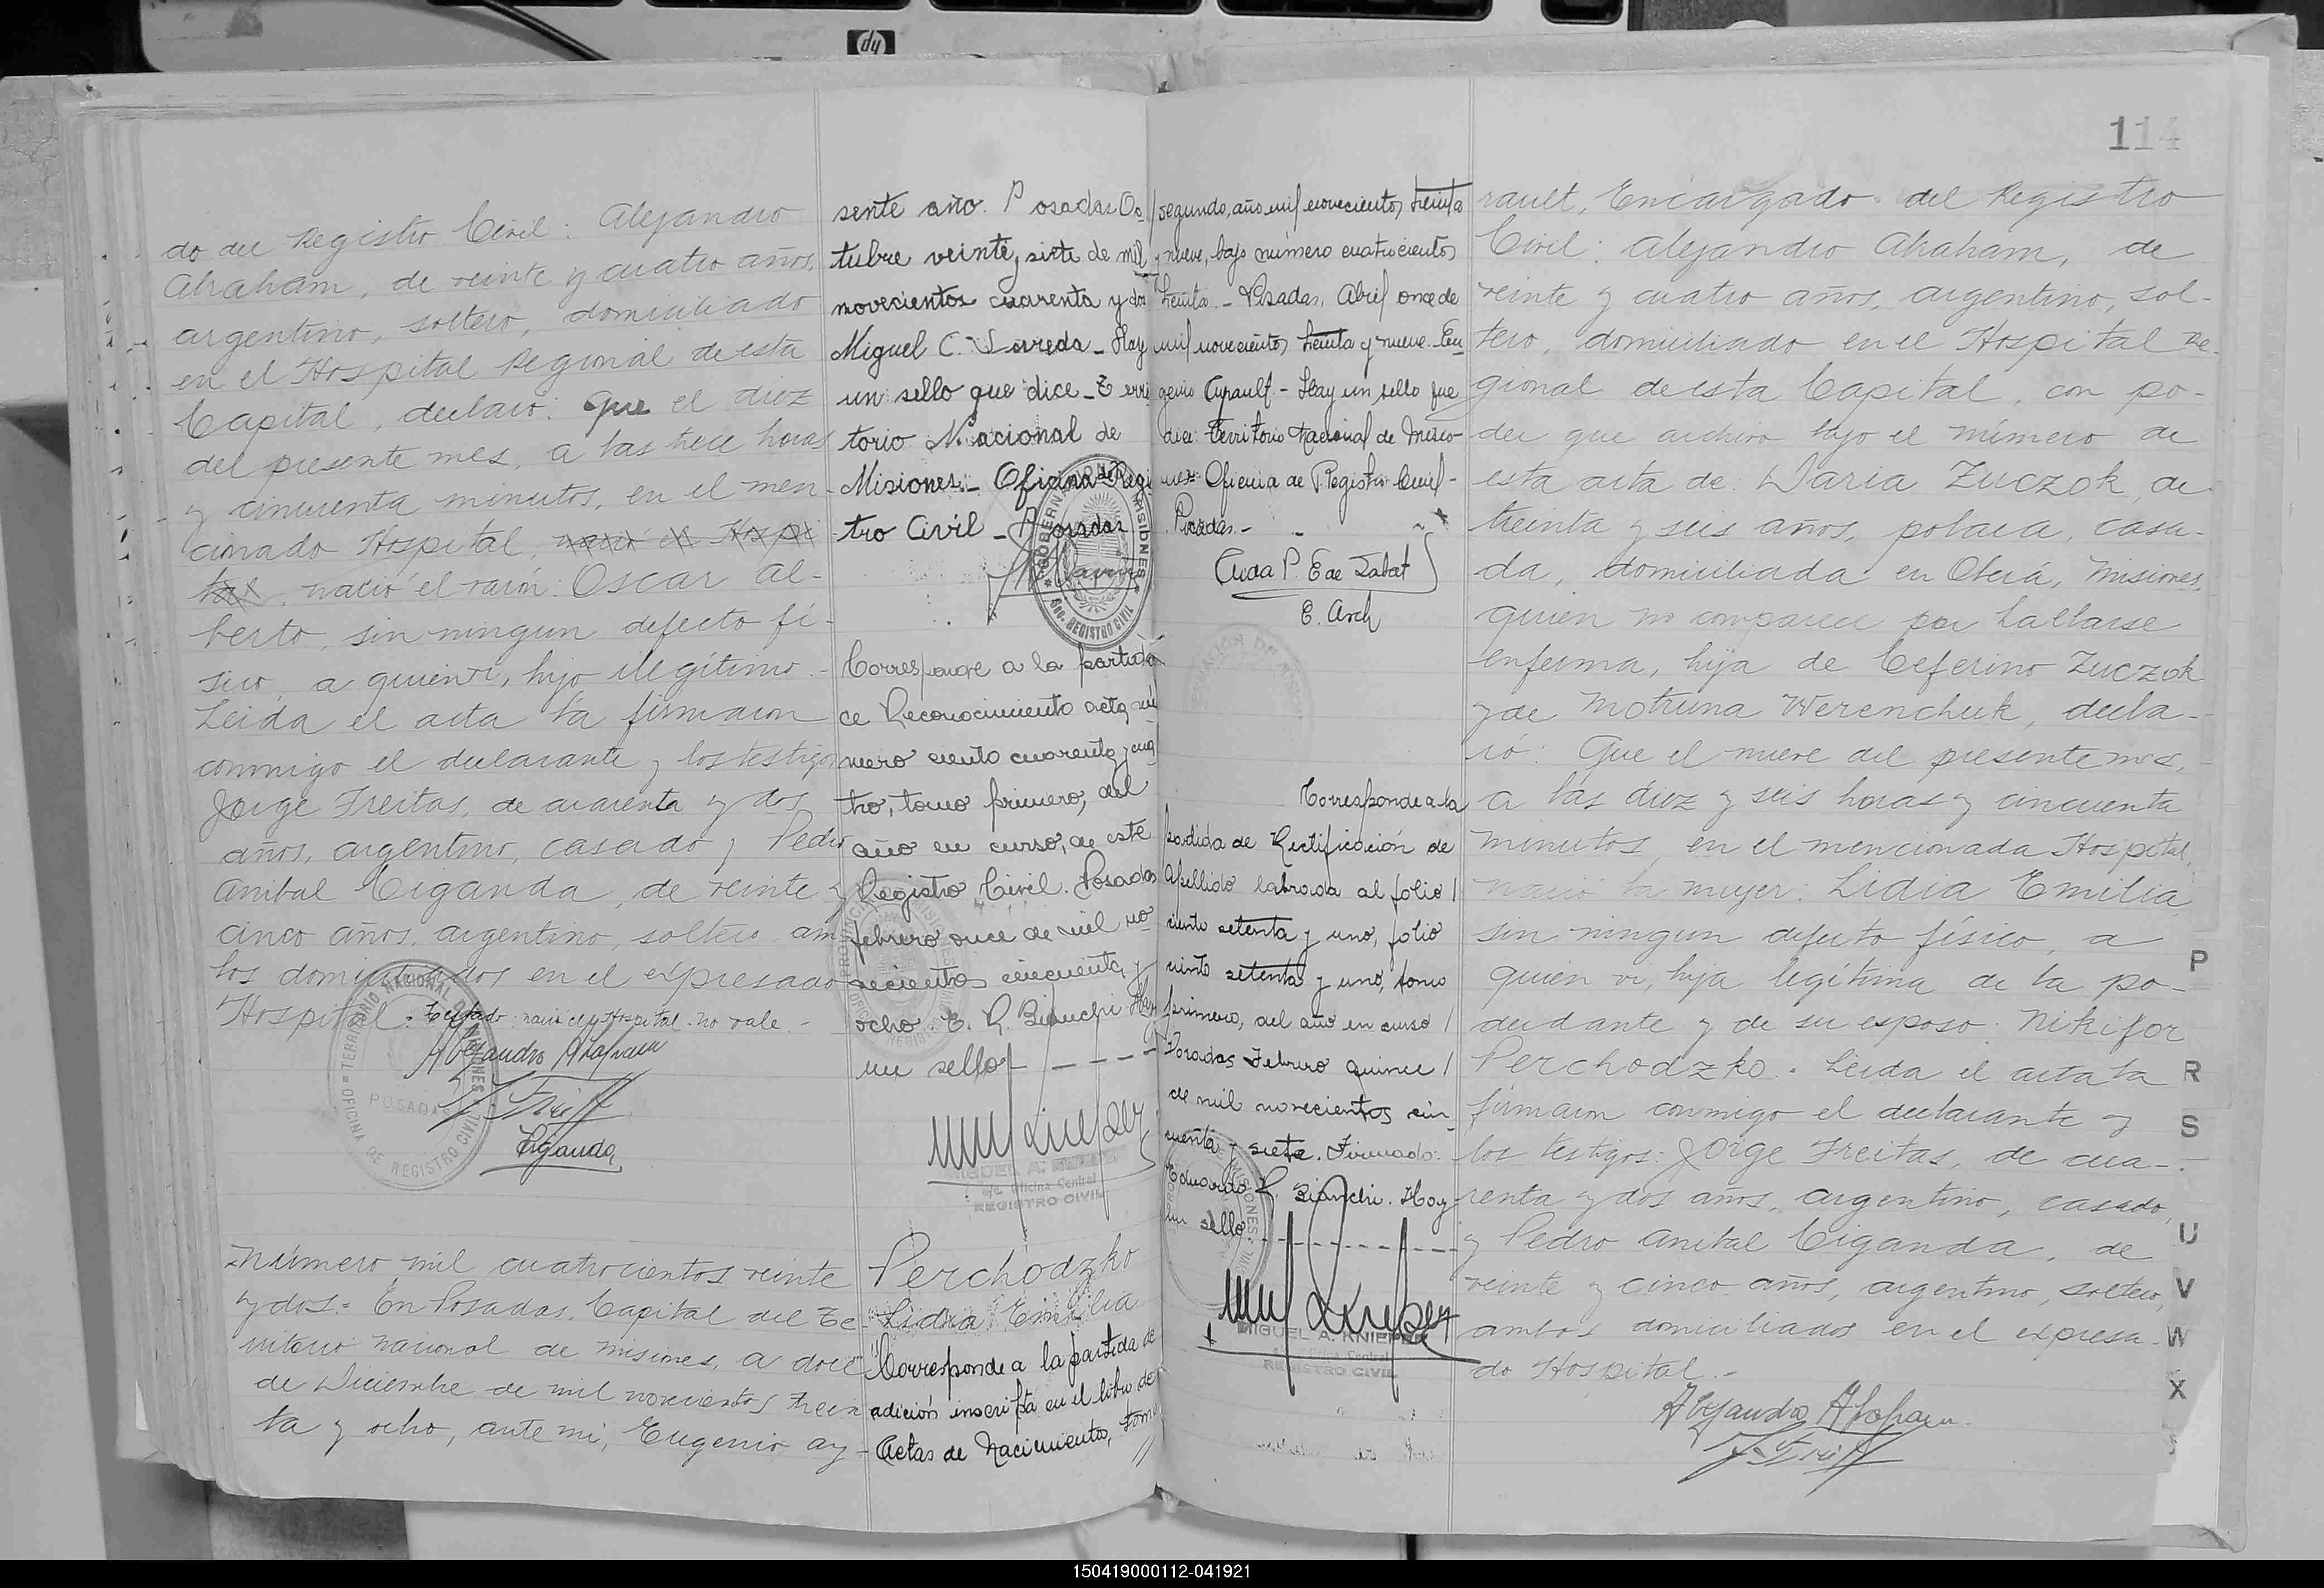 114
do del Registro Civil: Alejandro
Abraham, de veinte y cuatro años,
argentino, soltero, domiciliado
en el Hospital Regional de esta
Capital, declaró: Que el diez
del presente mes, a las trece horas
y cincuenta minutos, en el men-
cionado Hospital, nació el Hospi
tal, nació el varón: Oscar Al-
berto, sin ningun defecto fí-
sico, a quien ví, hijo ilegítimo.-
Leida el acta la firmaron
conmigo el declarante y los testigos
Jorge Freitas, de cuarenta y dos
años, argentino, casado y Pedro
Anibal Ciganda, de veinte y
cinco años, argentino, soltero, am
bos domiciliados en el expresado
Hospital. Testado: nació el Hospital. no vale.-
Alejandro Abraham
J. Freitas
Ciganda
TERRITORIO NACIONAL DE MISIONES
POSADAS
OFICINA DE REGISTRO CIVIL
Número mil cuatrocientos veinte
y dos. En Posadas, Capital del Te-
rritorio Nacional de Misiones, a doce
de Diciembre de mil novecientos trein
ta y ocho, ante mi, Eugenio Ay-
sente año. Posadas Oc
tubre veinte y siete de mil
novecientos cuarenta y dos
Miguel C. Laveda - Hay
un sello que dice - Terri
torio Nacional de
Misiones - Oficina Regi
tro Civil - Posadas
GOBERNACION DE MISIONES
Sec. REGISTRO CIVIL
Corresponde a la partida
de Reconocimiento acta nú
mero ciento cuarenta y cua
tro, tomo primero, del
año en curso, de este
Registro Civil. Posadas
febrero once de mil no
vecientos cincuenta y
ocho E. R. Bianchi Hay
un sello - - - -
MIGUEL A. KNIEPER
a/c Oficina Central
REGISTRO CIVIL
Perchodzko
Lidia Emilia
Corresponde a la partida de
adición inscripta en el libro de
Actas de Nacimientos, tomo
segundo, año mil novecientos treinta
y nueve, bajo número cuatrocientos
treinta.- Posadas, Abril once de
mil novecientos treinta y nueve. Eu
genio Ayrault.- Hay un sello que
dice: Territorio Nacional de Misio-
nes- Oficina de Registro Civil-
Posadas.-
Aida P. E de Labat
E. Arch
Corresponde a la
partida de Rectificación de
Apellido labrada al folio
ciento setenta y uno, folio
ciento setenta y uno, tomo
primero, del año en curso
Posadas Febrero quince
de mil novecientos cin
cuenta y siete. Firmado:
Eduardo R. Bianchi. Hay
un sello - - - -
MIGUEL A. KNIEPER
a/c Oficina Central
REGISTRO CIVIL
rault, Encargado del Registro
Civil: Alejandro Abraham, de
veinte y cuatro años, argentino, sol-
tero, domiciliado en el Hospital Re-
gional de esta Capital, con po-
der que archivo bajo el número de
esta acta de: Daria Zuczok, de
treinta y seis años, polaca, casa-
da, domiciliada en Oberá, Misiones,
quien no comparece por hallarse
enferma, hija de Ceferino Zuczok
y de Motruna Werenchuk, decla-
ró: Que el nueve del presente mes,
a las diez y seis horas y cincuenta
minutos, en el mencionada Hospital,
nació la mujer: Lidia Emilia,
sin ningun defecto físico, a
quien ví, hija legítima de la po-
derdante y de su esposo: Nikifor
Perchodzko. Leida el acta la
firmaron conmigo el declarante y
los testigos: Jorge Freitas, de cua-
renta y dos años, argentino, casado,
y Pedro Anibal Ciganda, de
veinte y cinco años, argentino, soltero,
ambos domiciliados en el expresa-
do Hospital.-
Alejandro Abraham
J. Freitas
P
R
S
U
V
W
X
hp
150419000112-041921